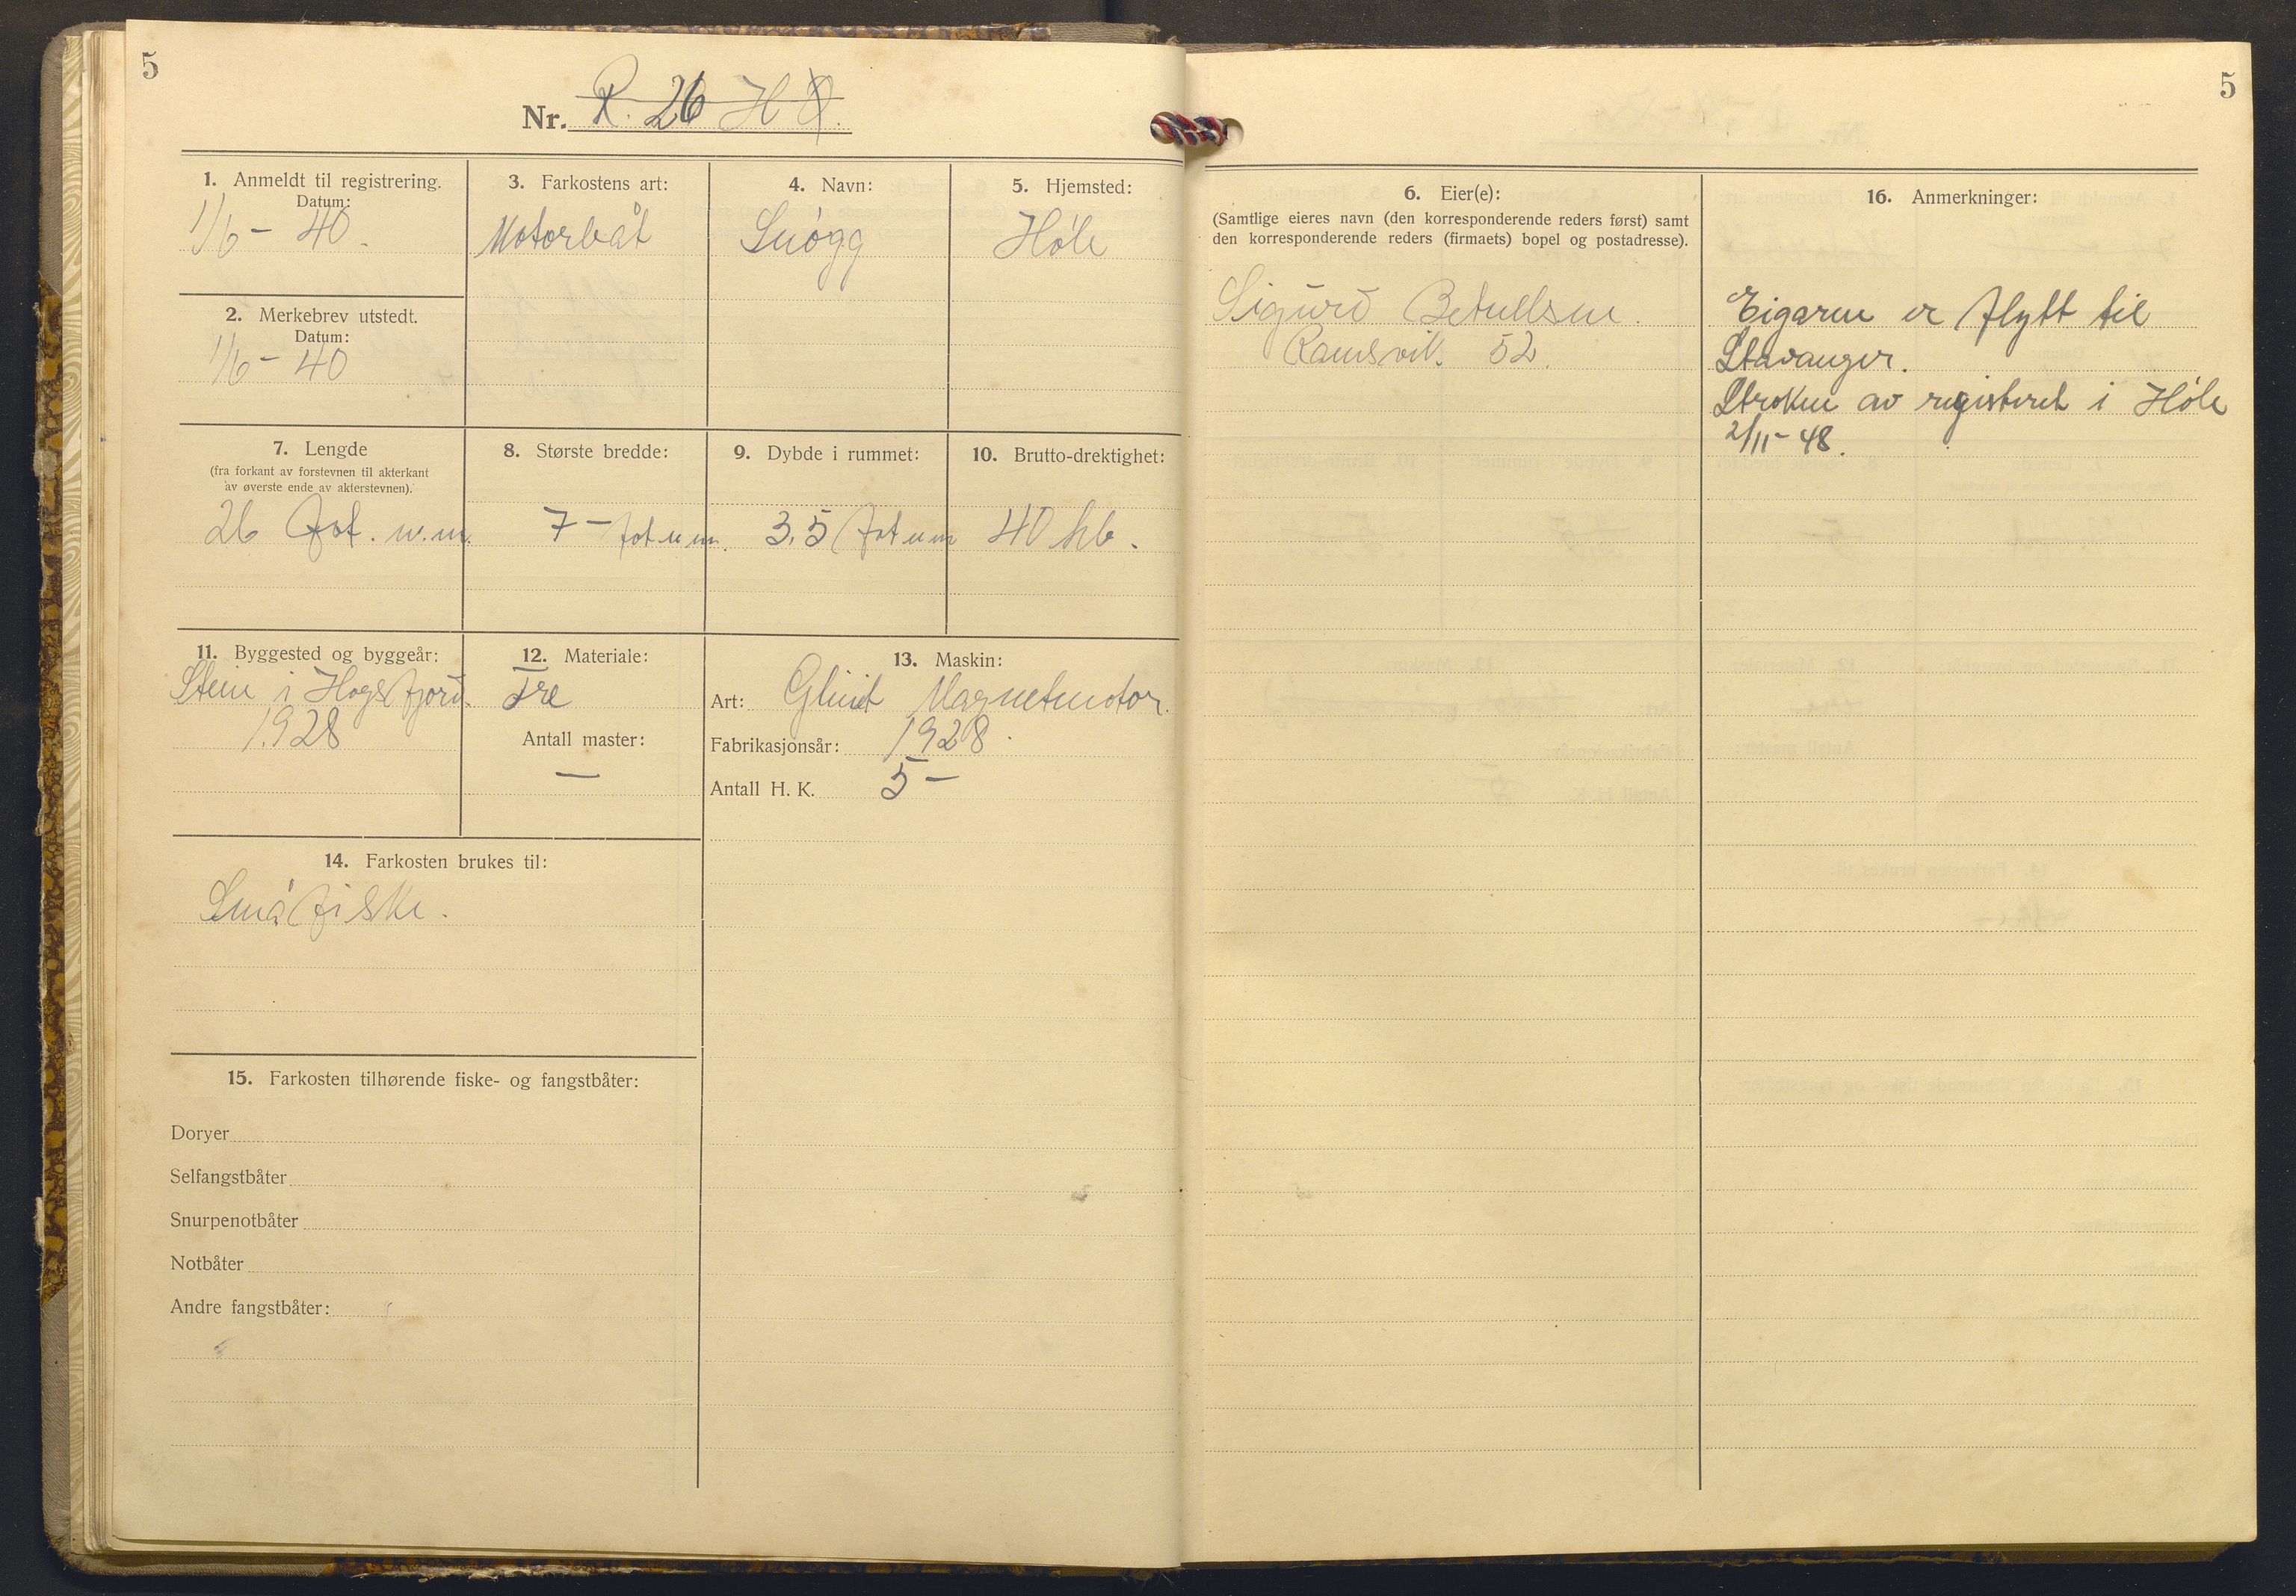 5
Nr. R. 26 H Ø.
1. Anmeldt til registrering.
Datum:
1/6 – 40.
2. Merkebrev utstedt.
Datum:
1/6 – 40
3. Farkostens art:
Motorbåt
4. Navn:
Snøgg
5. Hjemsted:
Høle
7. Lengde
(fra forkant av forstevnen til akterkant
av øverste ende av akterstevnen).
26 fot. u.m.
8. Største bredde:
7 – fot u m.
9. Dybde i rummet:
3,5 fot u m
10. Brutto-drektighet:
40 hl.
11. Byggested og byggeår:
i Høgsfjord.
1928
12. Materiale:
Tre
Antall master:
—
13. Maskin:
Art: Magnetmotor.
Fabrikasjonsår: 1928.
Antall H. K. 5 –
14. Farkosten brukes til:
Småfiske.
15. Farkosten tilhørende fiske- og fangstbåter:
Doryer
Selfangstbåter
Snurpenotbåter
Notbåter
Andre fangstbåter:
5
6. Eier(e):
(Samtlige eieres navn (den korresponderende reders først) samt
den korresponderende reders (firmaets) bopel og postadresse).
Sigurd Betuelsen.
Ramsvik. 52.
16. Anmerkninger:
Eigaren er flytt til
Stavanger.
Stroken av registeret i Høle
2/11 – 48.